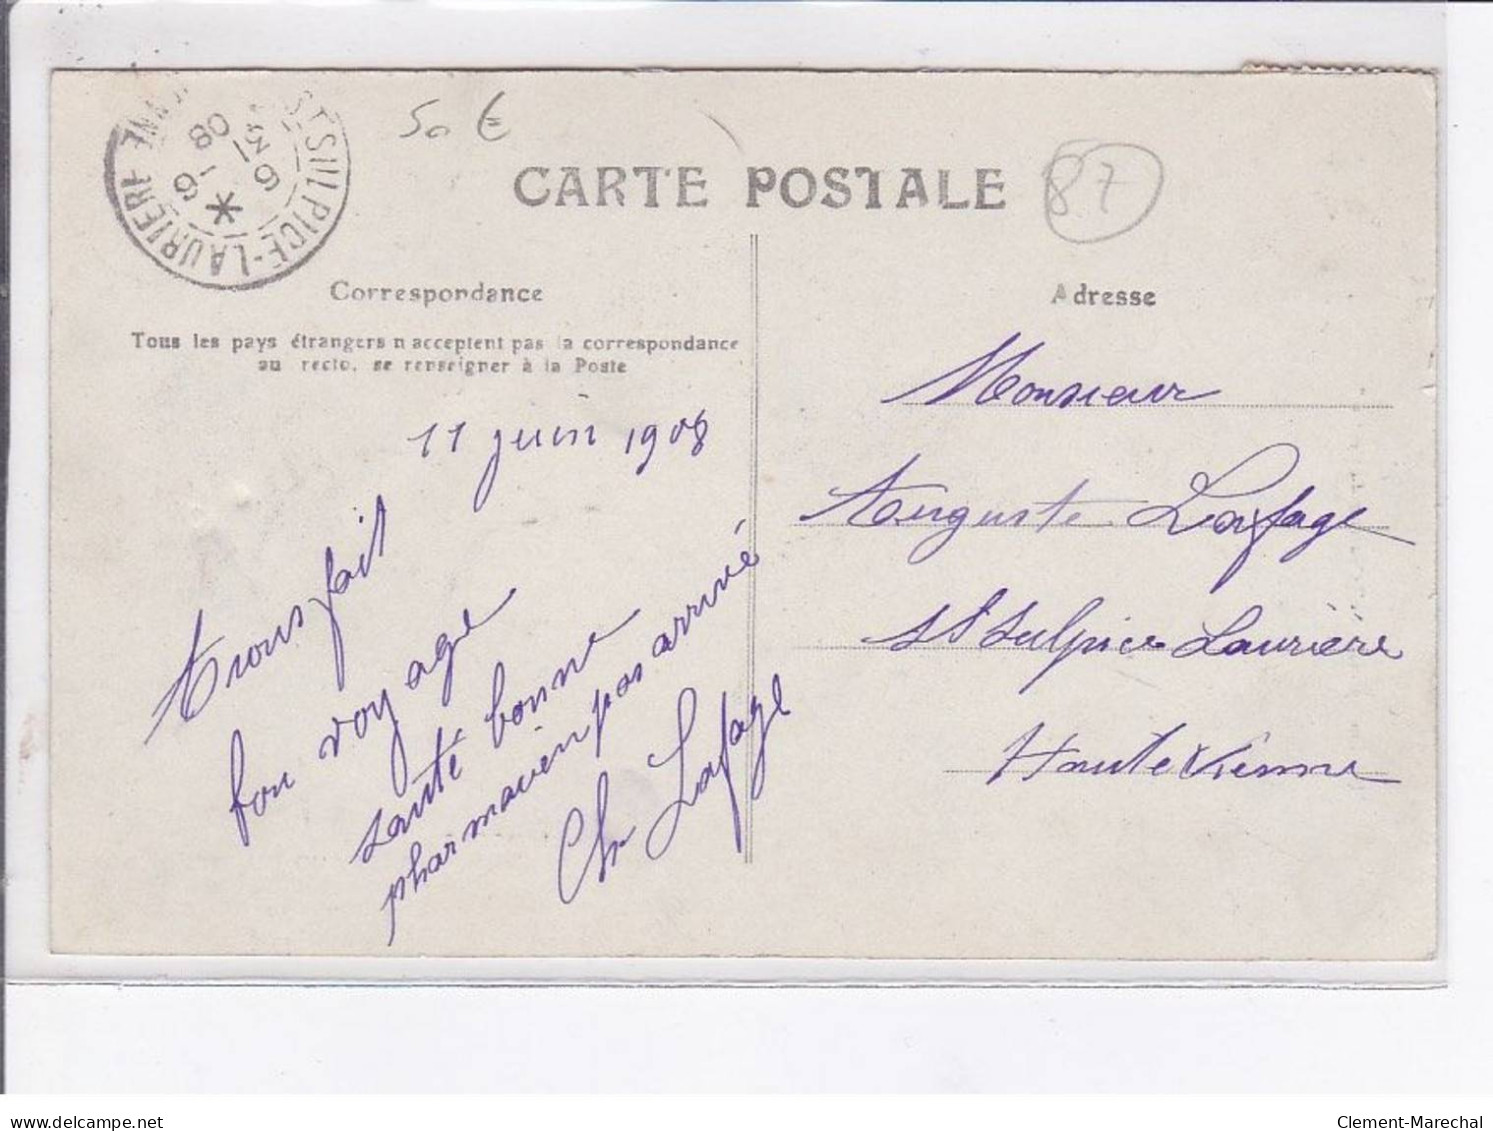 ST SULPICE-LAURIERE
50 €
CARTE POSTALE
87
Correspondance
Tous les pays étrangers n acceptent pas la correspondance
au recto, se renseigner à la Poste
11 juin 1908
avons fait
bon voyage
santé bonne
pharmacien pas arrivé
Ch Lafage
Adresse
Monsieur
Auguste Lafage
St Sulpice Laurière
Haute Vienne
delcampe.net
Clement-Marechal